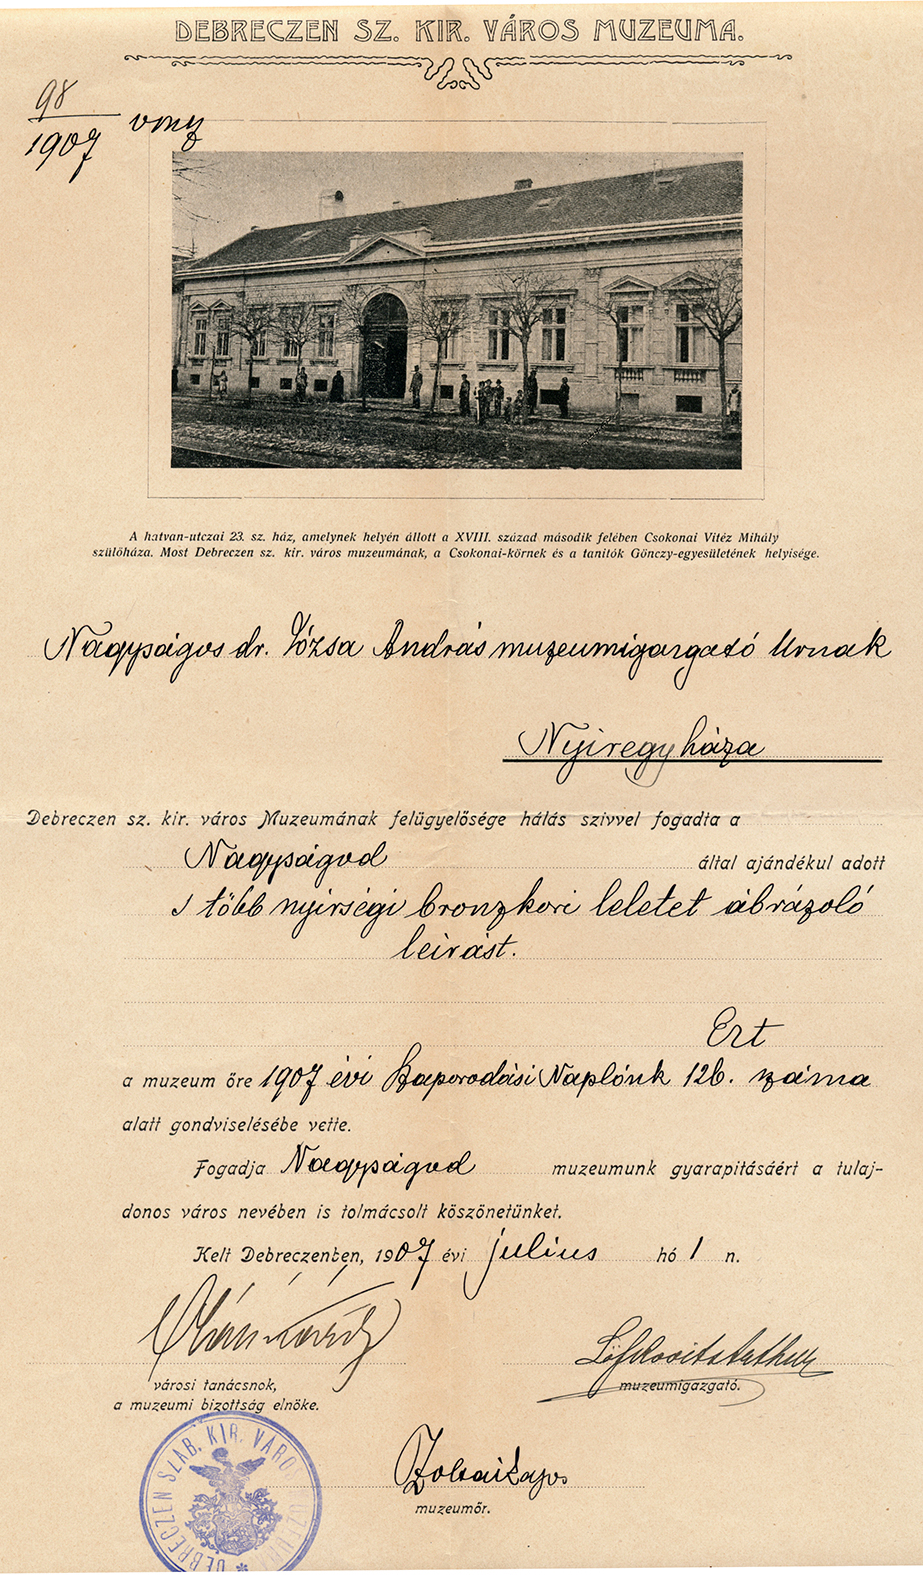 DEBRECZEN SZ. KIR. VÁROS MUZEUMA.
98
1907
A hatvan-utczai 23. sz. ház, amelynek helyén állott a XVIII. század második felében Csokonai Vitéz Mihály
szülőháza. Most Debreczen sz. kir. város muzeumának, a Csokonai-körnek és a tanitók Gönczy-egyesületének helyisége.
Nagyságos dr. Józsa András muzeumigazgató Urnak
Nyiregyháza
Debreczen sz. kir. város Muzeumának felügyelősége hálás szivvel fogadta a
Nagyságod által ajándékul adott
több nyirségi bronzkori leletet ábrázoló
leirást.
Ezt
a muzeum őre 1907 évi Szaporodási Naplónk 126. száma
alatt gondviselésébe vette.
Fogadja Nagyságod muzeumunk gyarapitásáért a tulaj-
donos város nevében is tolmácsolt köszönetünket.
Kelt Debreczenben, 1907 évi julius hó 1 n.
Löfkovits Arthur
városi tanácsnok,
muzeumigazgató.
a muzeumi bizottság elnöke.
Zoltai Lajos
muzeumőr.
DEBRECZEN SZAB. KIR. VÁROS MUZEUMA